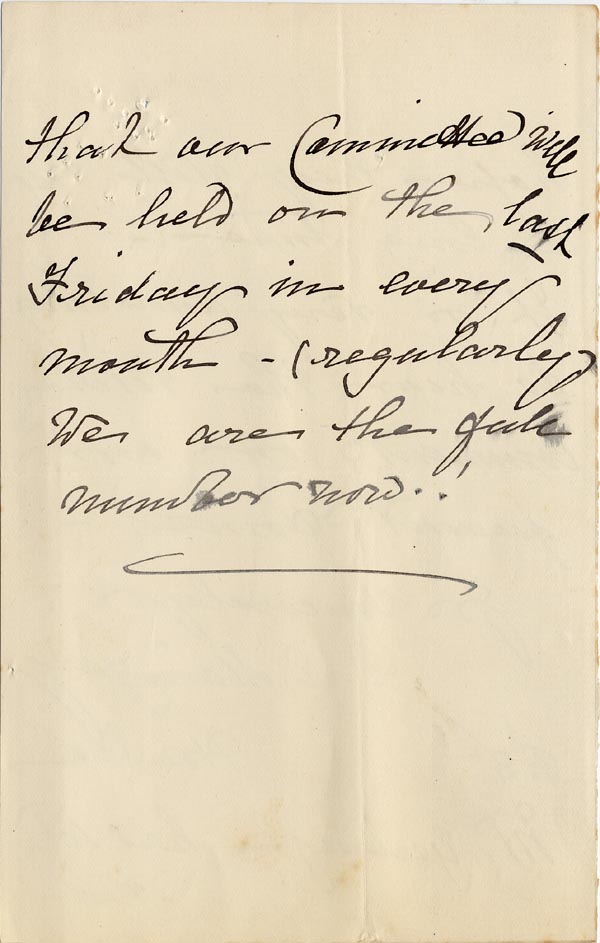 that our Committee will
be held on the last
Friday in every
month - (regularly)
We are the full
number now..!